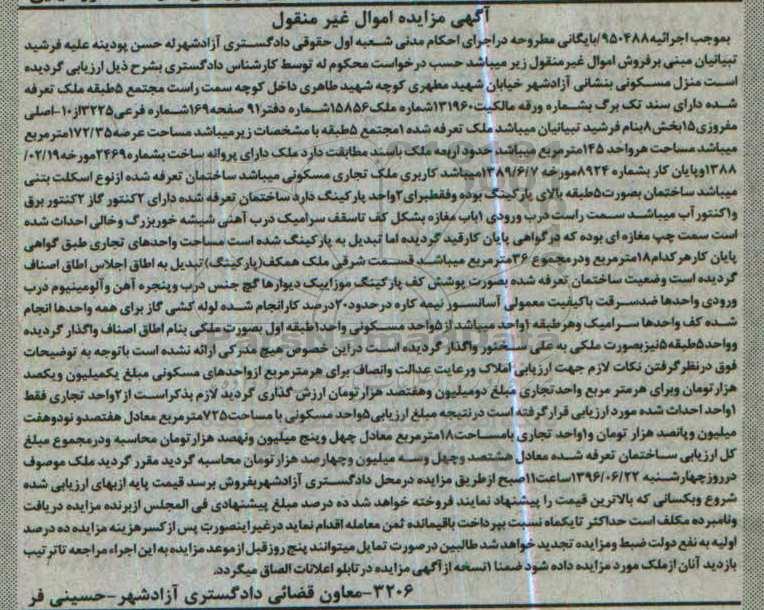 آگهی مزایده اموال غیر منقول
بموجب اجرائیه ۹۵۰۴۸۸/بایگانی مطروحه دراجرای احکام مدنی شعبه اول حقوقی دادگستری آزادشهرله حسن پودینه علیه فرشید
تبیانیان مبنی برفروش اموال غیرمنقول زیر میباشد حسب درخواست محکوم له توسط کارشناس دادگستری بشرح ذیل ارزیابی گردیده
است منزل مسکونی بنشانی آزادشهر خیابان شهید مطهری کوچه شهید طاهری داخل کوچه سمت راست مجتمع ۵طبقه ملک تعرفه
شده دارای سند تک برگ بشماره ورقه مالکیت۱۳۱۹۶۰شماره ملک۱۵۸۵۶شماره دفتر۹۱ صفحه۱۶۹شماره فرعی۳۲۲۵از۱۰-اصلی
مفروزی۱۵بخش۸بنام فرشید تبیانیان میباشد ملک تعرفه شده ۱مجتمع ۵طبقه با مشخصات زیرمیباشد مساحت عرصه۱۷۲/۳۵مترمربع
میباشد مساحت هرواحد ۱۴۵مترمربع میباشد حدود اربعه ملک باسند مطابقت دارد ملک دارای پروانه ساخت بشماره۲۴۶۹مورخه۰۲/۱۹/
۱۳۸۸وپایان کار بشماره ۸۹۲۴مورخه ۱۳۸۹/۶/۷میباشد کاربری ملک تجاری مسکونی میباشد ساختمان تعرفه شده ازنوع اسکلت بتنی
میباشد ساختمان بصورت۵طبقه بالای پارکینگ بوده وفقطبرای۲واحد پارکینگ دارد ساختمان تعرفه شده دارای ۲کنتور گاز ۲کنتور برق
و۱کنتورآب میباشد سمت راست درب ورودی ۱باب مغازه بشکل کف تاسقف سرامیک درب آهنی شیشه خوربزرگ وخالی احداث شده
است سمت چپ مغازه ای بوده که درگواهی پایان کارقید گردیده اما تبدیل به پارکینگ شده است مساحت واحدهای تجاری طبق گواهی
پایان کارهرکدام۱۸مترمربع ودرمجموع ۳۶مترمربع میباشد قسمت شرقی ملک همکف(پارکینگ)تبدیل به اطاق اجلاس اطاق اصناف
گردیده است وضعیت ساختمان تعرفه شده بصورت پوشش کف پارکینگ موزاییک دیوارها گچ جنس درب وپنجره آهن وآلومینیوم درب
ورودی واحدها ضدسرقت باکیفیت معمولی آسانسور نیمه کاره درحدود۲۰درصد کارانجام شده لوله کشی گاز برای همه واحدها انجام
شده کف واحدها سرامیک وهرطبقه ۱واحد میباشد از۵واحد مسکونی واحد۱طبقه اول بصورت ملکی بنام اطاق اصناف واگذار گردیده
وواحد۵طبقه۵نیزبصورت ملکی به علی سختور واگذار گردیده است دراین خصوص هیچ مدرکی ارائه نشده است باتوجه به توضیحات
فوق درنظرگرفتن نکات لازم جهت ارزیابی املاک ورعایت عدالت وانصاف برای هرمترمربع ازواحدهای مسکونی مبلغ یکمیلیون ویکصد
هزارتومان وبرای هرمتر مربع واحدتجاری مبلغ دومیلیون وهفتصد هزارتومان ارزش گذاری گردید لازم بذکراست از۲واحد تجاری فقط
۱واحد احداث شده مورد ارزیابی قرارگرفته است درنتیجه مبلغ ارزیابی۵واحد مسکونی با مساحت۷۲۵مترمربع معادل هفتصدو نودوهفت
میلیون وپانصد هزار تومان و۱واحد تجاری بامساحت۱۸مترمربع معادل چهل وپنج میلیون ونهصد هزارتومان محاسبه ودرمجموع مبلغ
کل ارزیابی ساختمان تعرفه شده معادل هشتصد وچهل وسه میلیون وچهارصد هزارتومان محاسبه گردید مقرر گردید ملک موصوف
درروزچهارشنبه ۱۳۹۶/۰۶/۲۲ساعت۱۱صبح ازطریق مزایده درمحل دادگستری آزادشهربفروش برسد قیمت پایه ازبهای ارزیابی شده
شروع وبکسانی که بالاترین قیمت را پیشنهاد نمایند فروخته خواهد شد ده درصد مبلغ پیشنهادی فی المجلس ازبرنده مزایده دریافت
ونامبرده مکلف است حداکثر تایکماه نسبت بپرداخت باقیمانده ثمن معامله اقدام نماید درغیراینصورت پس ازکسرهزینه مزایده ده درصد
اولیه به نفع دولت ضبط ومزایده تجدید خواهدشد طالبین درصورت تمایل میتوانند پنج روزقبل ازموعد مزایده به این اجراء مراجعه تاترتیب
بازدید آنان ازملک مورد مزایده داده شود ضمنا ۱نسخه ازآگهی مزایده درتابلو اعلانات الصاق میگردد.
۳۲۰۶-معاون قضائی دادگستری آزادشهر-حسینی فر